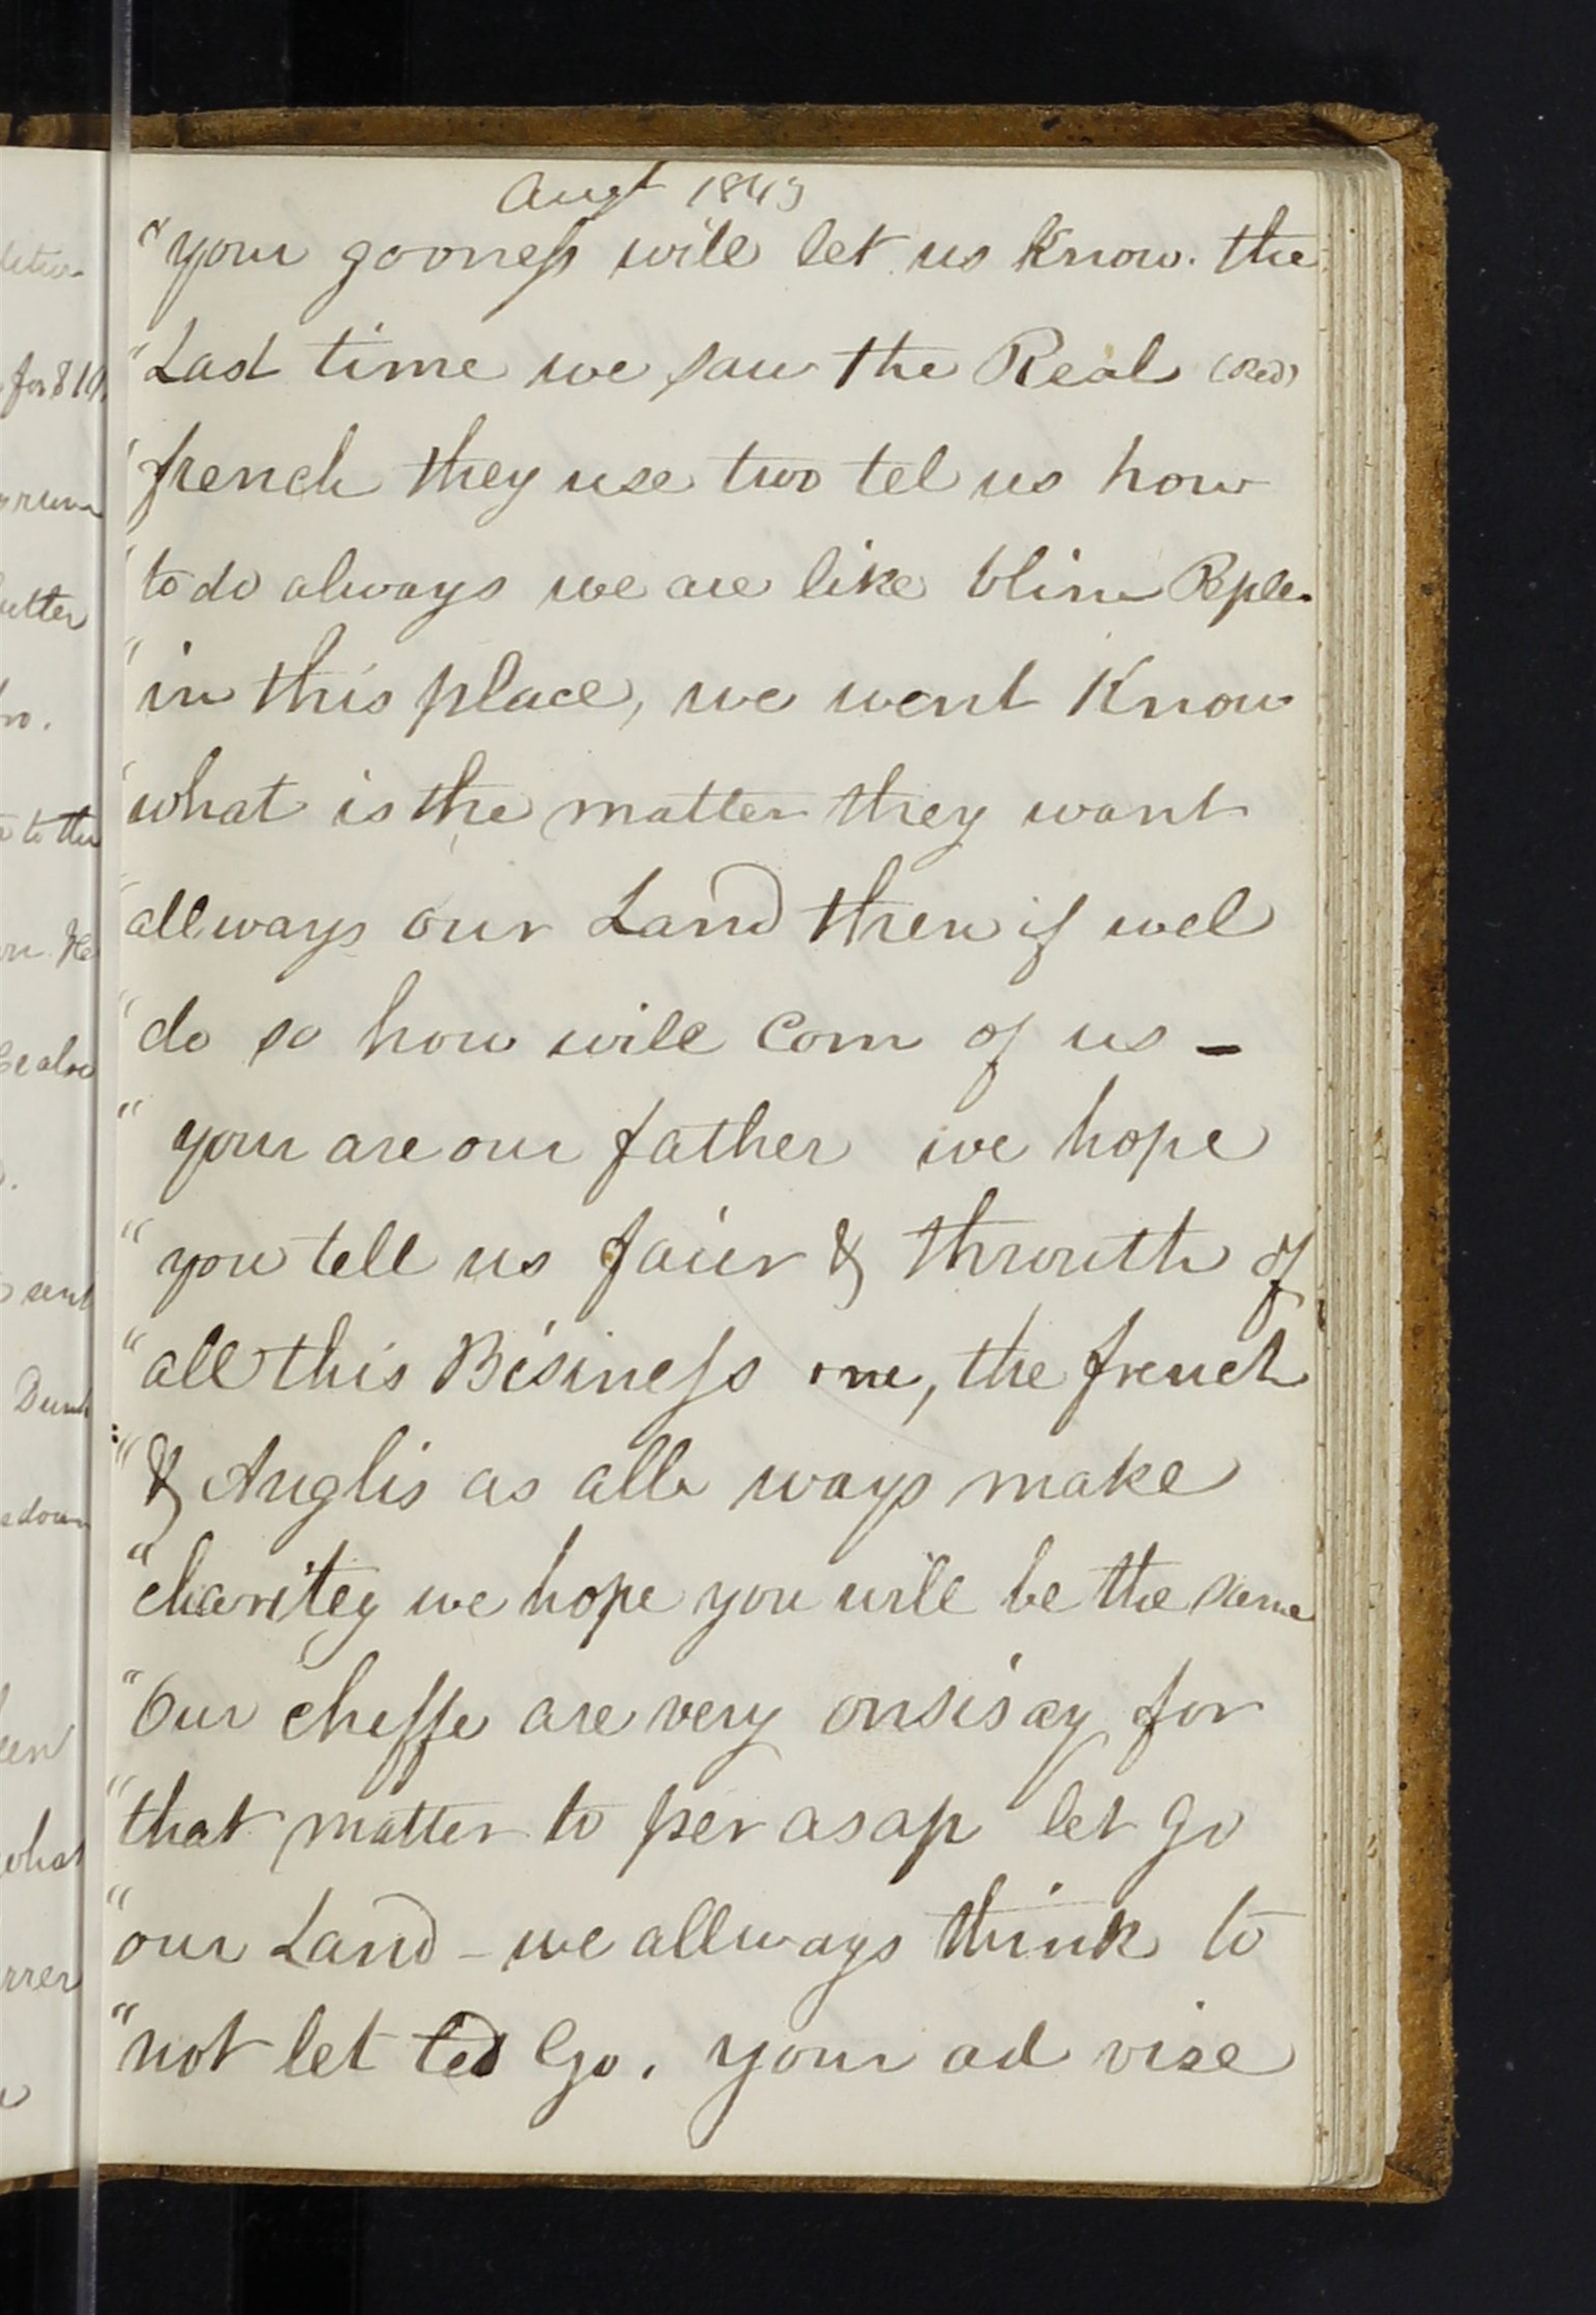 Augt 1843
"your gooness will let us Know. the
"Last time we saw the Real (Red)
"french they use two tel us how
"to do always we are like blim Peple.
"in this place, we went Know
"what is the matter they want
"allways our Land then if wel
"do so how will Com of us -
" your are our father we hope
"you tell us fair & throuth of
"all this Bisiness one, the french
"& Anglis as alle ways make
"charitey we hope you will be the same
"Our cheffe are very onsisay for
"that matter to per asap let go
"our Land - we allways think to
"not let ted Go. your ad vise
for 810
utter
to the
Be also
sent
what